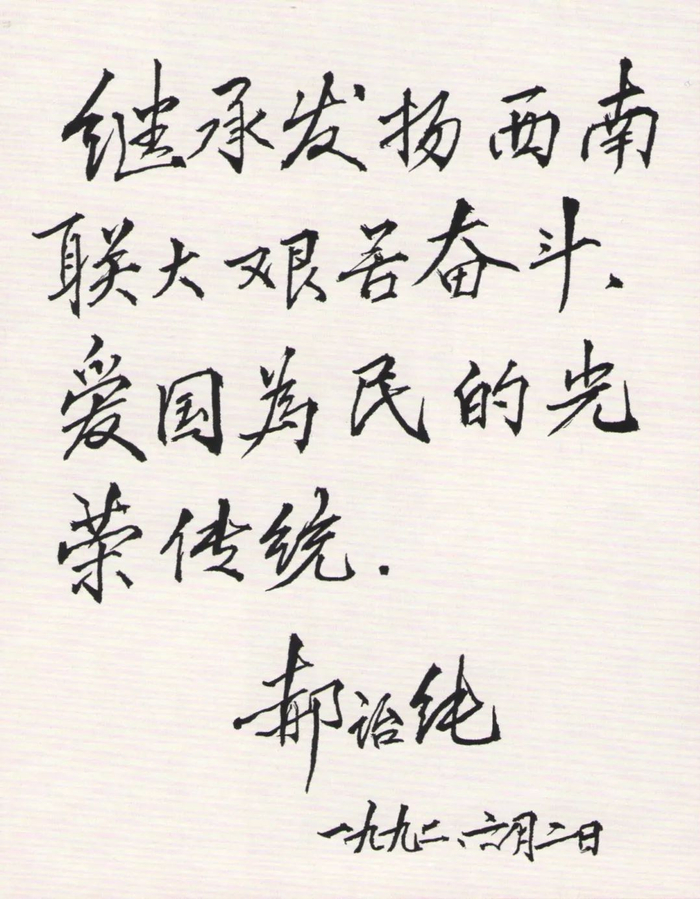 继承发扬西南
联大艰苦奋斗、
爱国为民的光
荣传统.
郝诒纯
一九九二、六月二日